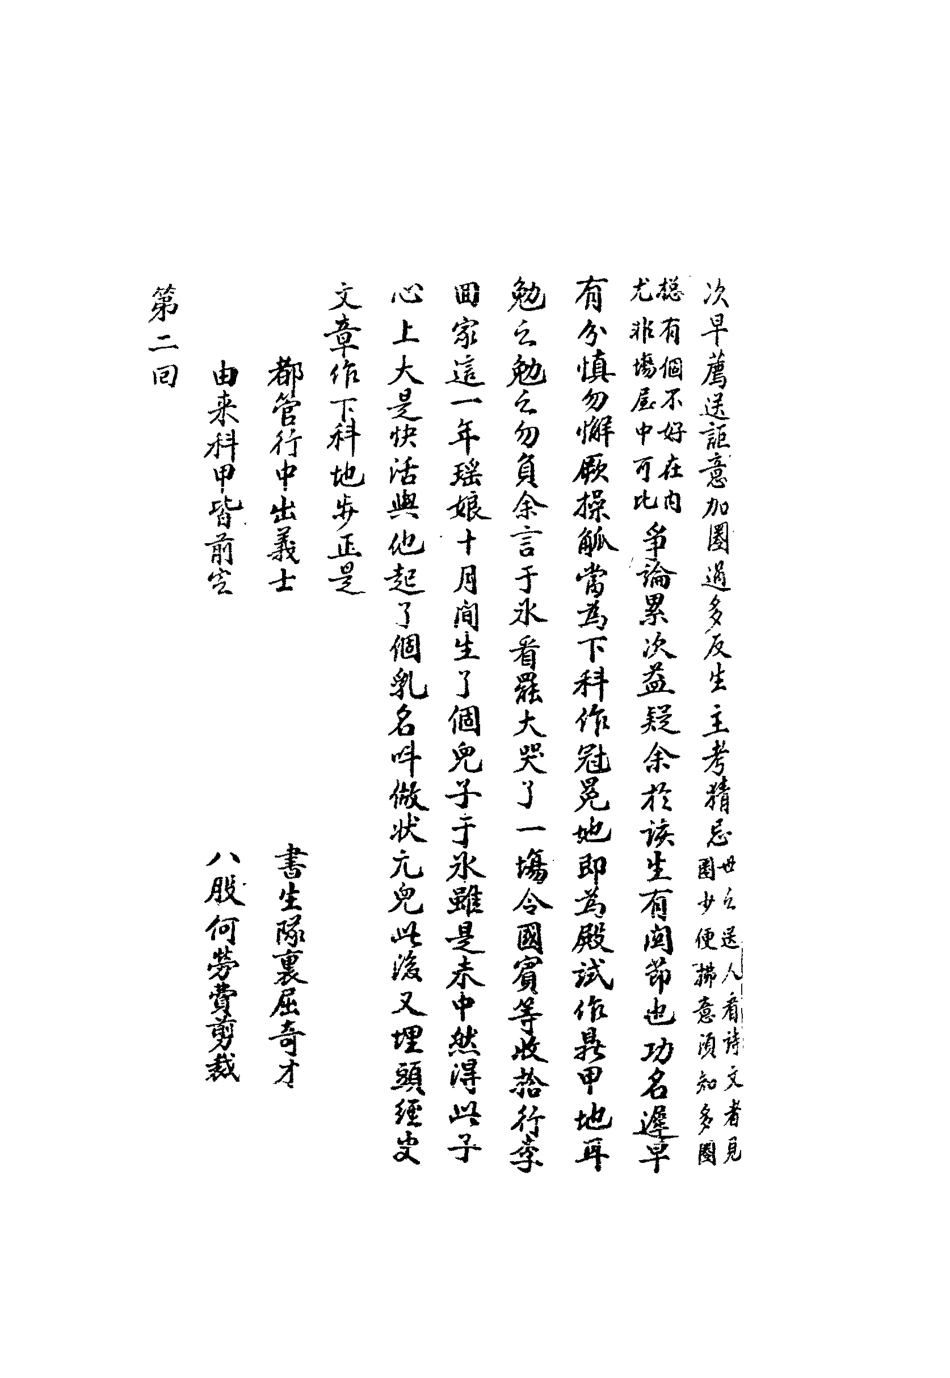 次早薦送詎意加圈過多反生主考猜忌世之送人看詩文者見
圈少便拂意須知多圈
摠有個不好在内
尤非塲屋中可比
爭論累次益疑余於該生有関節也功名遲早
有分慎勿懈厥操觚當為下科作冠冕地即為殿試作鼎甲地耳
勉之勉之勿負余言于氷看罷大哭了一塲令國賓等收拾行李
回家這一年瑶娘十月間生了個兒子于氷雖是未中然得此子
心上大是快活與他起了個乳名呌做状元兒此後又埋頭經史
文章作下科地步正是
都管行中出義士　書生隊裏屈奇才
由来科甲皆前定　八股何勞費剪裁
第二回